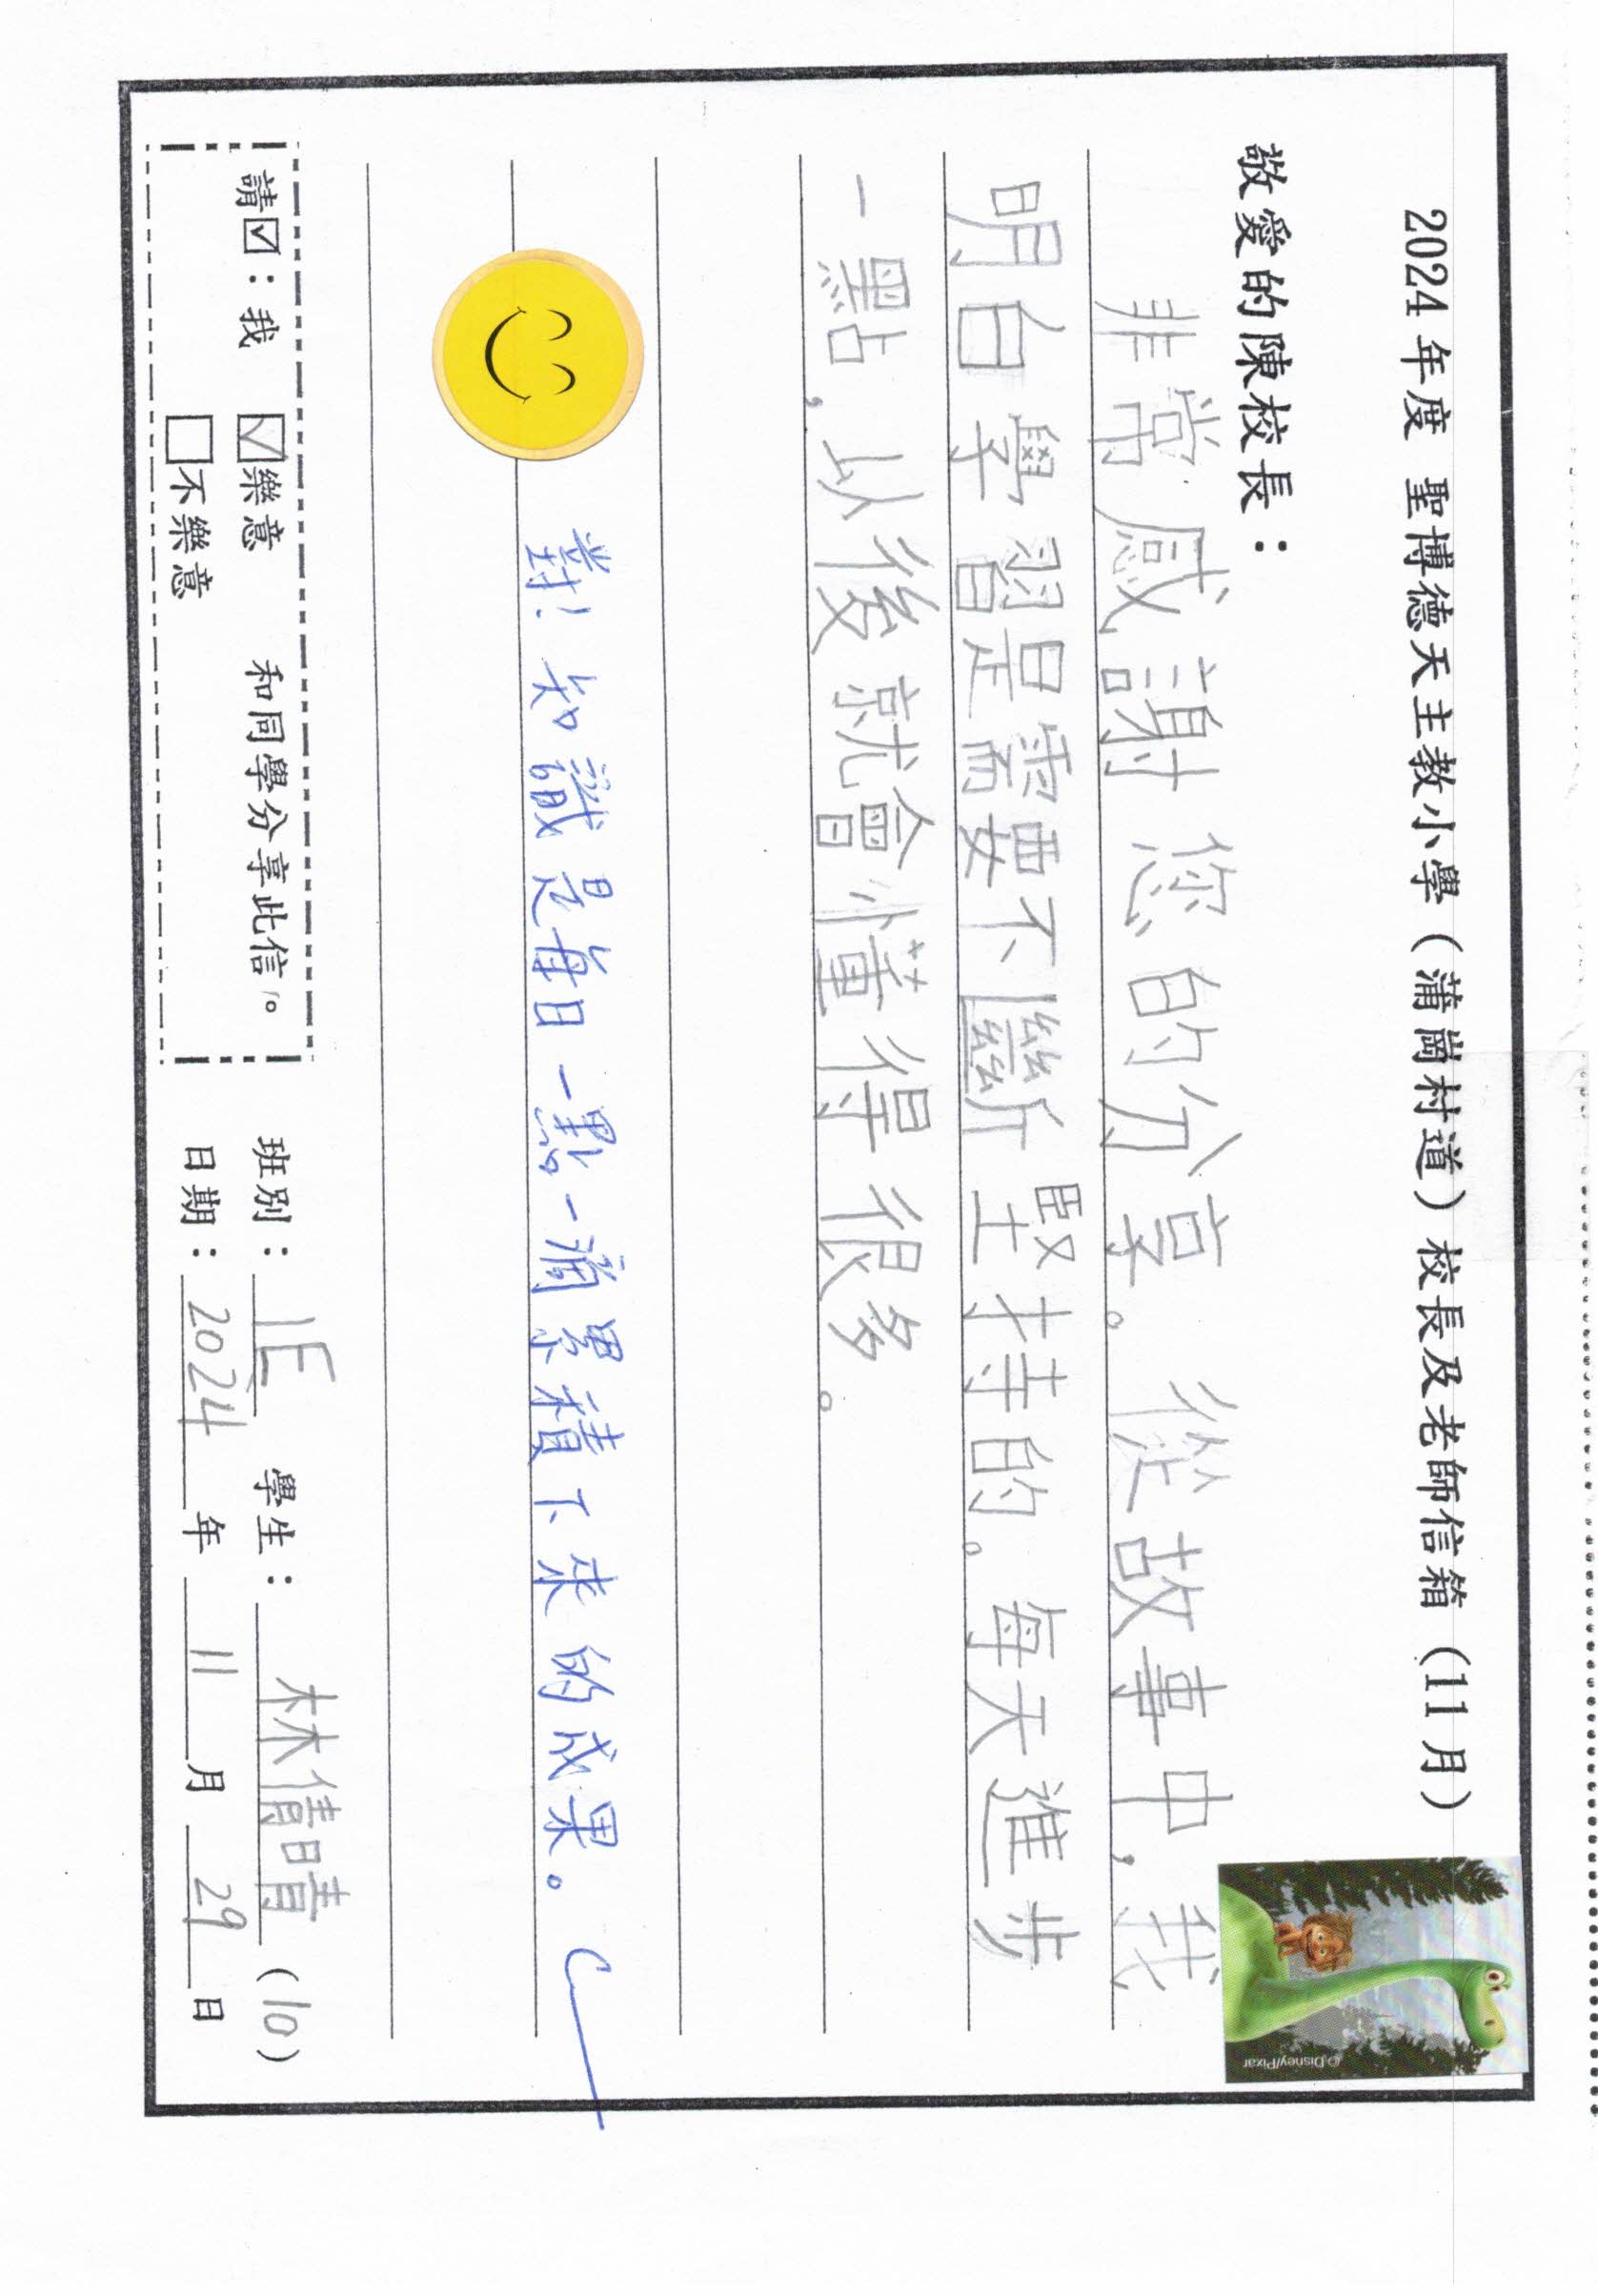 2024 年度 聖博德天主教小學（蒲崗村道）校長及老師信箱（11 月）
敬愛的陳校長：
非常感謝您的分享。從故事中，我
明白學習是需要不斷堅持的。每天進步
一點，以後就會懂得很多。
對！知識是每日一點一滴累積下來的成果。
請☑：我 ☑樂意 和同學分享此信。
□不樂意
班別：1E 學生：林倩晴（10）
日期：2024 年 11 月 29 日
©Disney/Pixar